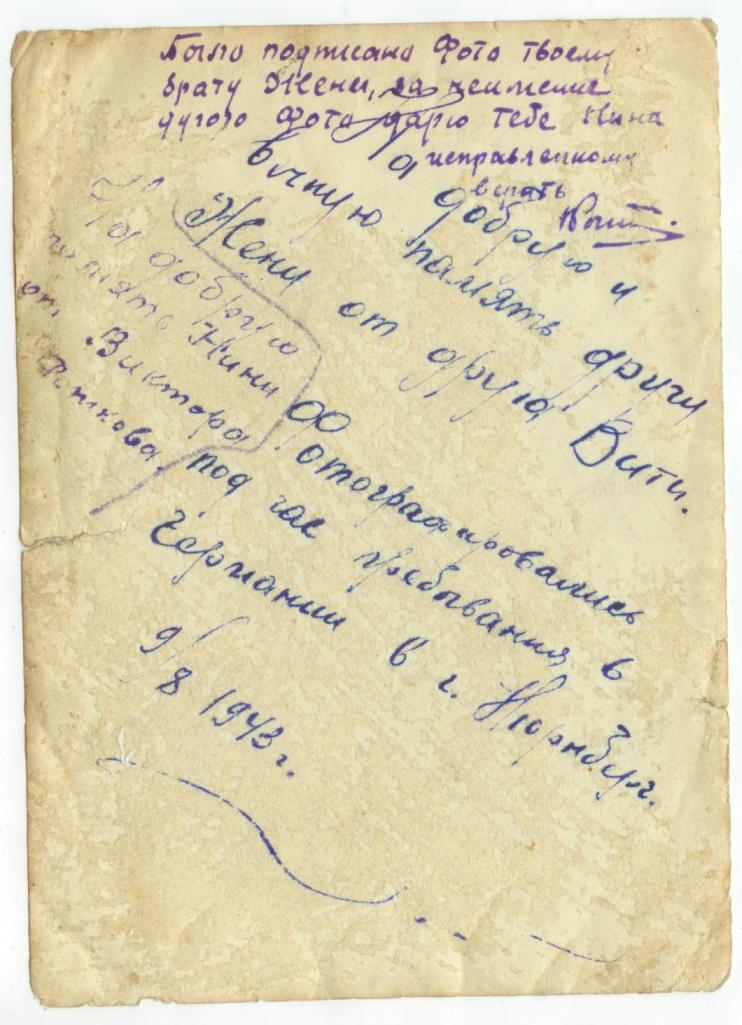 Было подписано Фото твоему
брату Жени, за неимение
другого Фото дарю тебе Нина
исправленному
верать
На добрую и
вечную память другу
Жени от друга Вити.
Фотографировались
под час пребывания в
Германии в г. Нюрнберг.
9/8 1943 г.
На добрую
память Нини
от Виктора